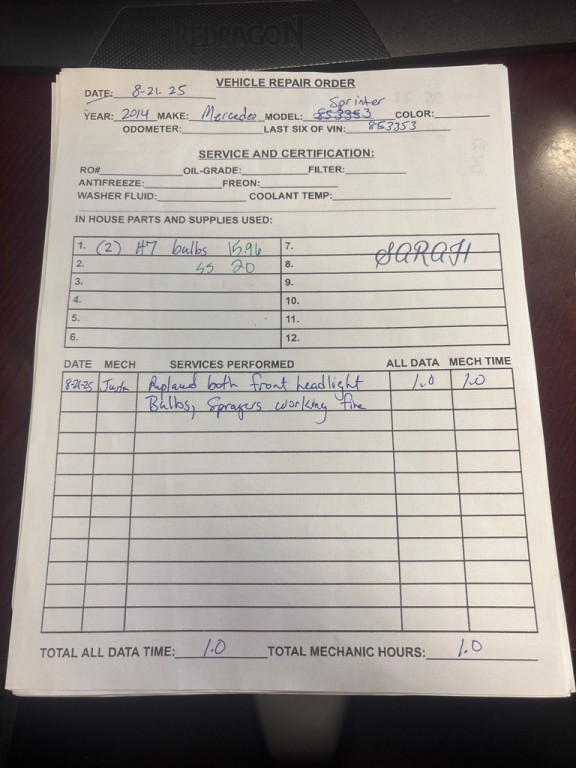 REDRAGON
VEHICLE REPAIR ORDER
DATE: 8-21-25
Sprinter
YEAR: 2014 MAKE: Mercedes MODEL: 853353 COLOR:
ODOMETER: LAST SIX OF VIN: 853353
SERVICE AND CERTIFICATION:
RO# OIL-GRADE: FILTER:
ANTIFREEZE: FREON:
WASHER FLUID: COOLANT TEMP:
IN HOUSE PARTS AND SUPPLIES USED:
1. (2) H7 bulbs 15.96 7. SARAH
2. SS 20 8.
3. 9.
4. 10.
5. 11.
6. 12.
DATE MECH SERVICES PERFORMED ALL DATA MECH TIME
8-21-25 Replaced both front headlight 1.0 1.0
Bulbs, Sprayers working fine
TOTAL ALL DATA TIME: 1.0 TOTAL MECHANIC HOURS: 1.0